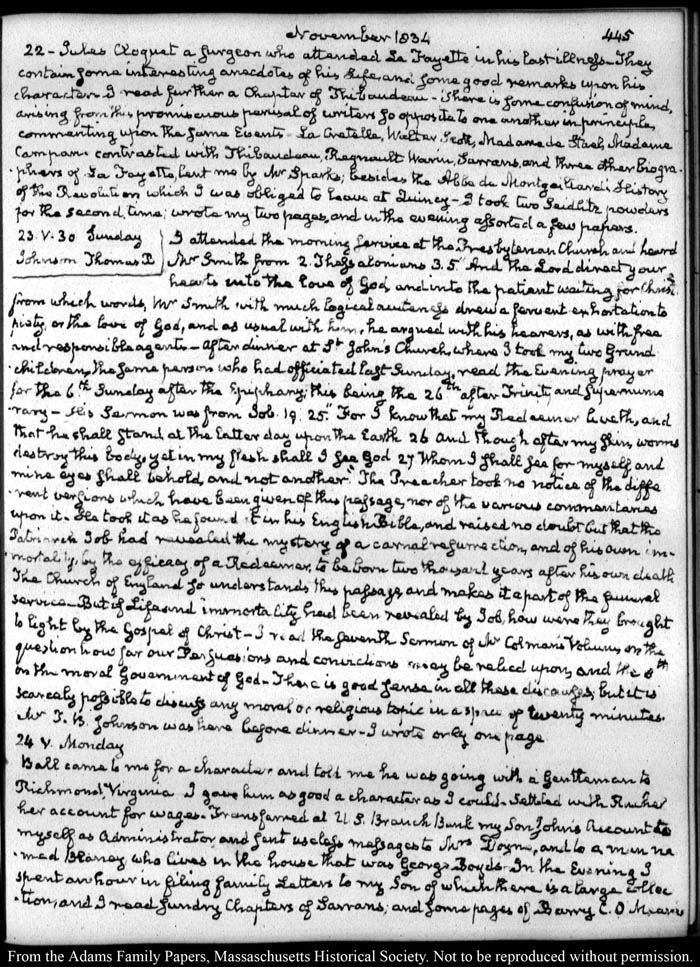 November 1834 445
22 - Jules Cloquet a Surgeon who attended La Fayette in his last illness - They
contain some interesting anecdotes of his life, and some good remarks upon his
character. I read further a Chapter of Thibaudeau - There is some confusion of mind,
arising from this promiscuous perusal of writers so opposite to one another in principle,
commenting upon the same Events - La Cretelle, Walter Scott, Madame de Stael, Madame
Campan contrasted with Thibaudeau, Regnault Warin, Sarrans, and three other biogra-
-phers of La Fayette, lent me by Mr Sparks; besides the Abbé de Montgaillard's History
of the Revolution which I was obliged to leave at Quincy - I took two Seidlitz powders
for the second time; wrote my two pages, and in the evening assorted a few papers.
23. V. 30 Sunday } I attended the morning service at the Presbyterian Church and heard
Johnson Thomas B. } Mr Smith from 2. Thessalonians 3.5 "And the Lord direct your
hearts into the love of God, and into the patient waiting for Christ"
from which words, Mr Smith with much logical acuteness drew a fervent exhortation to
piety, or the love of God, and as usual with him, he argued with his hearers, as with free
and responsible agents - After dinner at St John's Church, where I took my two Grand
children, the same person who had officiated last Sunday, read the Evening prayer
for the 6th Sunday after the Epiphany; this being the 26th after Trinity, and Supernume
rary - His Sermon was from Job. 19. 25. "For I know that my Redeemer liveth, and
that he shall stand at the latter day upon the Earth 26 And though after my skin, worms
destroy this body, yet in my flesh shall I see God 27 Whom I shall see for myself and
mine eyes shall behold, and not another." The Preacher took no notice of the diffe
-rent versions which have been given of this passage, nor of the various commentaries
upon it - He took it as he found it in his English Bible, and raised no doubt but that the
Patriarch Job had revealed the mystery of a carnal resurrection, and of his own im-
-mortality, by the efficacy of a Redeemer, to be born two thousand years after his own death
The Church of England so understands this passage, and makes it a part of the funeral
service - But if Life and immortality had been revealed by Job, how were they brought
to light by the Gospel of Christ - I read the seventh Sermon of Mr Colman's Volume on the
question how far our Persuasions and convictions may be relied upon, and the 8th
on the moral Government of God - There is good sense in all these discourses, but it is
scarcely possible to discuss any moral or religious topic in a space of twenty minutes.
Mr T. B. Johnson was here before dinner - I wrote only one page
24 V. Monday
Ball came to me for a character and told me he was going with a Gentleman to
Richmond, Virginia I gave him as good a character as I could. Settled with
her account for wages - Transferred at U.S. Branch Bank my Son John's Account to
myself as Administrator, and sent useless messages to Mrs and to a man na
-med Blarney who lives in the house that was George Boyd's - In the Evening I
spent an hour in filing family Letters to my Son of which there is a large collec
-tion, and I read sundry Chapters of Sarrans; and some pages of Barry E. O Meara
From the Adams Family Papers, Massachusetts Historical Society. Not to be reproduced without permission.